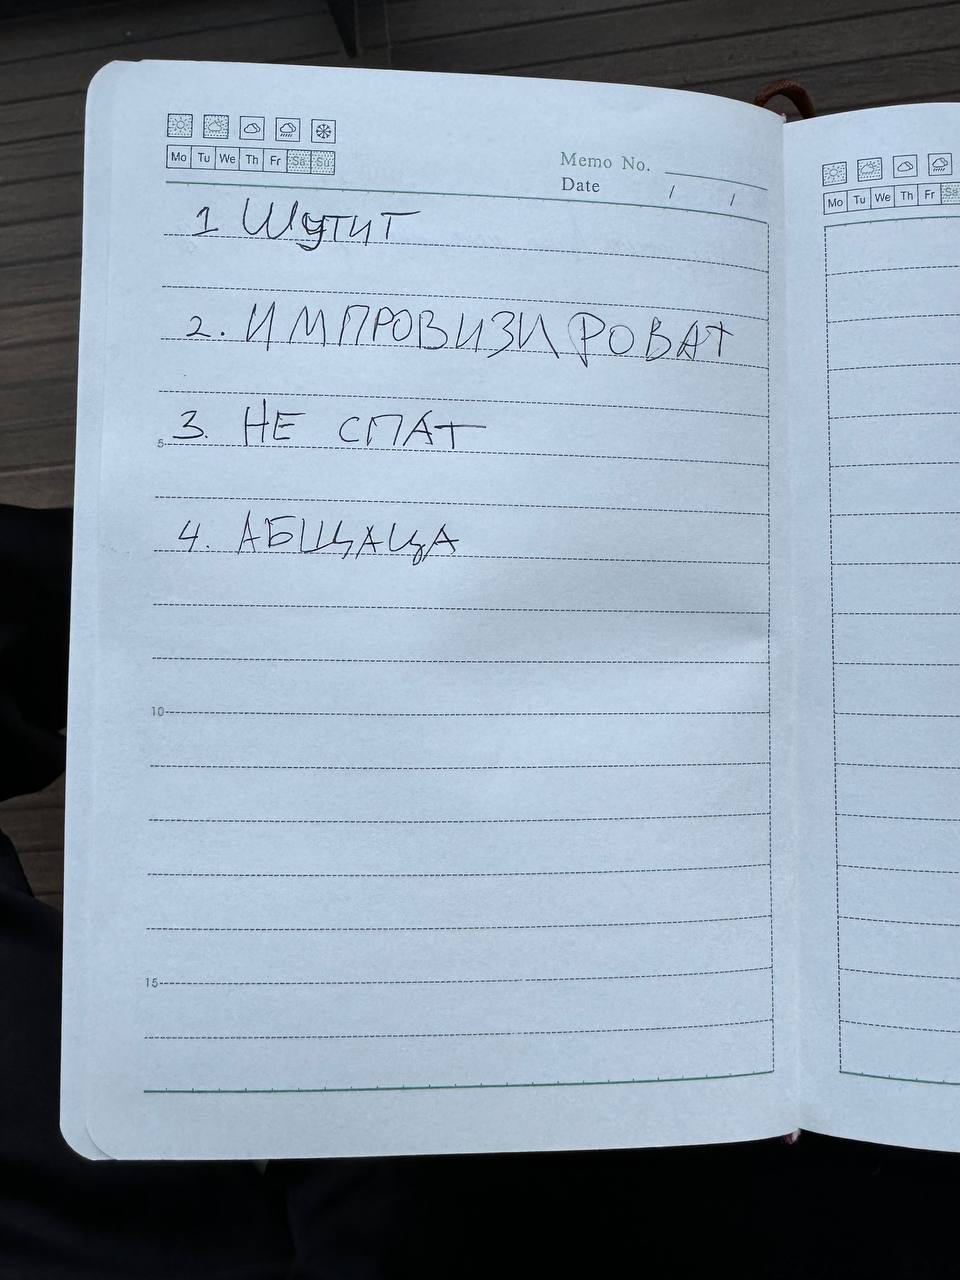 Mo Tu We Th Fr Sa Su
Memo No.
Date / /
1 Шутит
2. ИМПРОВИЗИРОВАТ
3. НЕ СПАТ
4. АБЩАЦА
5
10
15
Mo Tu We Th Fr Sa